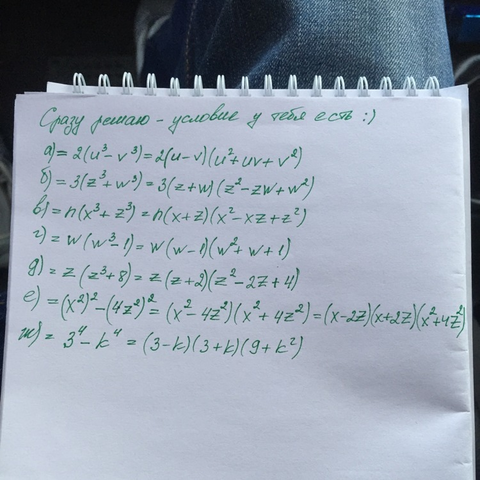 Сразу решаю - условие у тебя есть :)
а) = 2(u³ - v³) = 2(u - v)(u² + uv + v²)
б) = 3(z³ + w³) = 3(z + w)(z² - zw + w²)
в) = n(x³ + z³) = n(x + z)(x² - xz + z²)
г) = w(w³ - 1) = w(w - 1)(w² + w + 1)
д) = z(z³ + 8) = z(z + 2)(z² - 2z + 4)
е) = (x²)² - (4z²)² = (x² - 4z²)(x² + 4z²) = (x - 2z)(x + 2z)(x² + 4z²)
ж) = 3⁴ - k⁴ = (3 - k)(3 + k)(9 + k²)